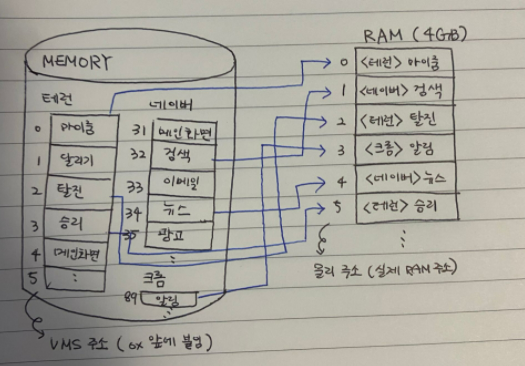 MEMORY
테런
0 아이홈
1 달리기
2 탈진
3 승리
4 메인화면
5 :
네이버
31 메인화면
32 검색
33 이메일
34 뉴스
35 광고
:
크롬
89 알림
:
VMS 주소 (0x 앞에 붙임)
RAM (4GB)
0 <테런> 아이홈
1 <네이버> 검색
2 <테런> 탈진
3 <크롬> 알림
4 <네이버> 뉴스
5 <테런> 승리
:
물리 주소 (실제 RAM 주소)